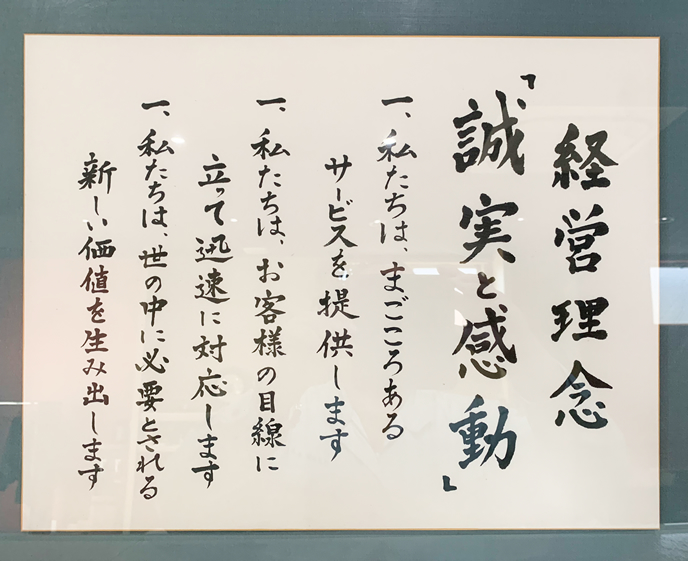 経営理念
「誠実と感動」
一、私たちは、まごころある
サービスを提供します
一、私たちは、お客様の目線に
立って迅速に対応します
一、私たちは、世の中に必要とされる
新しい価値を生み出します